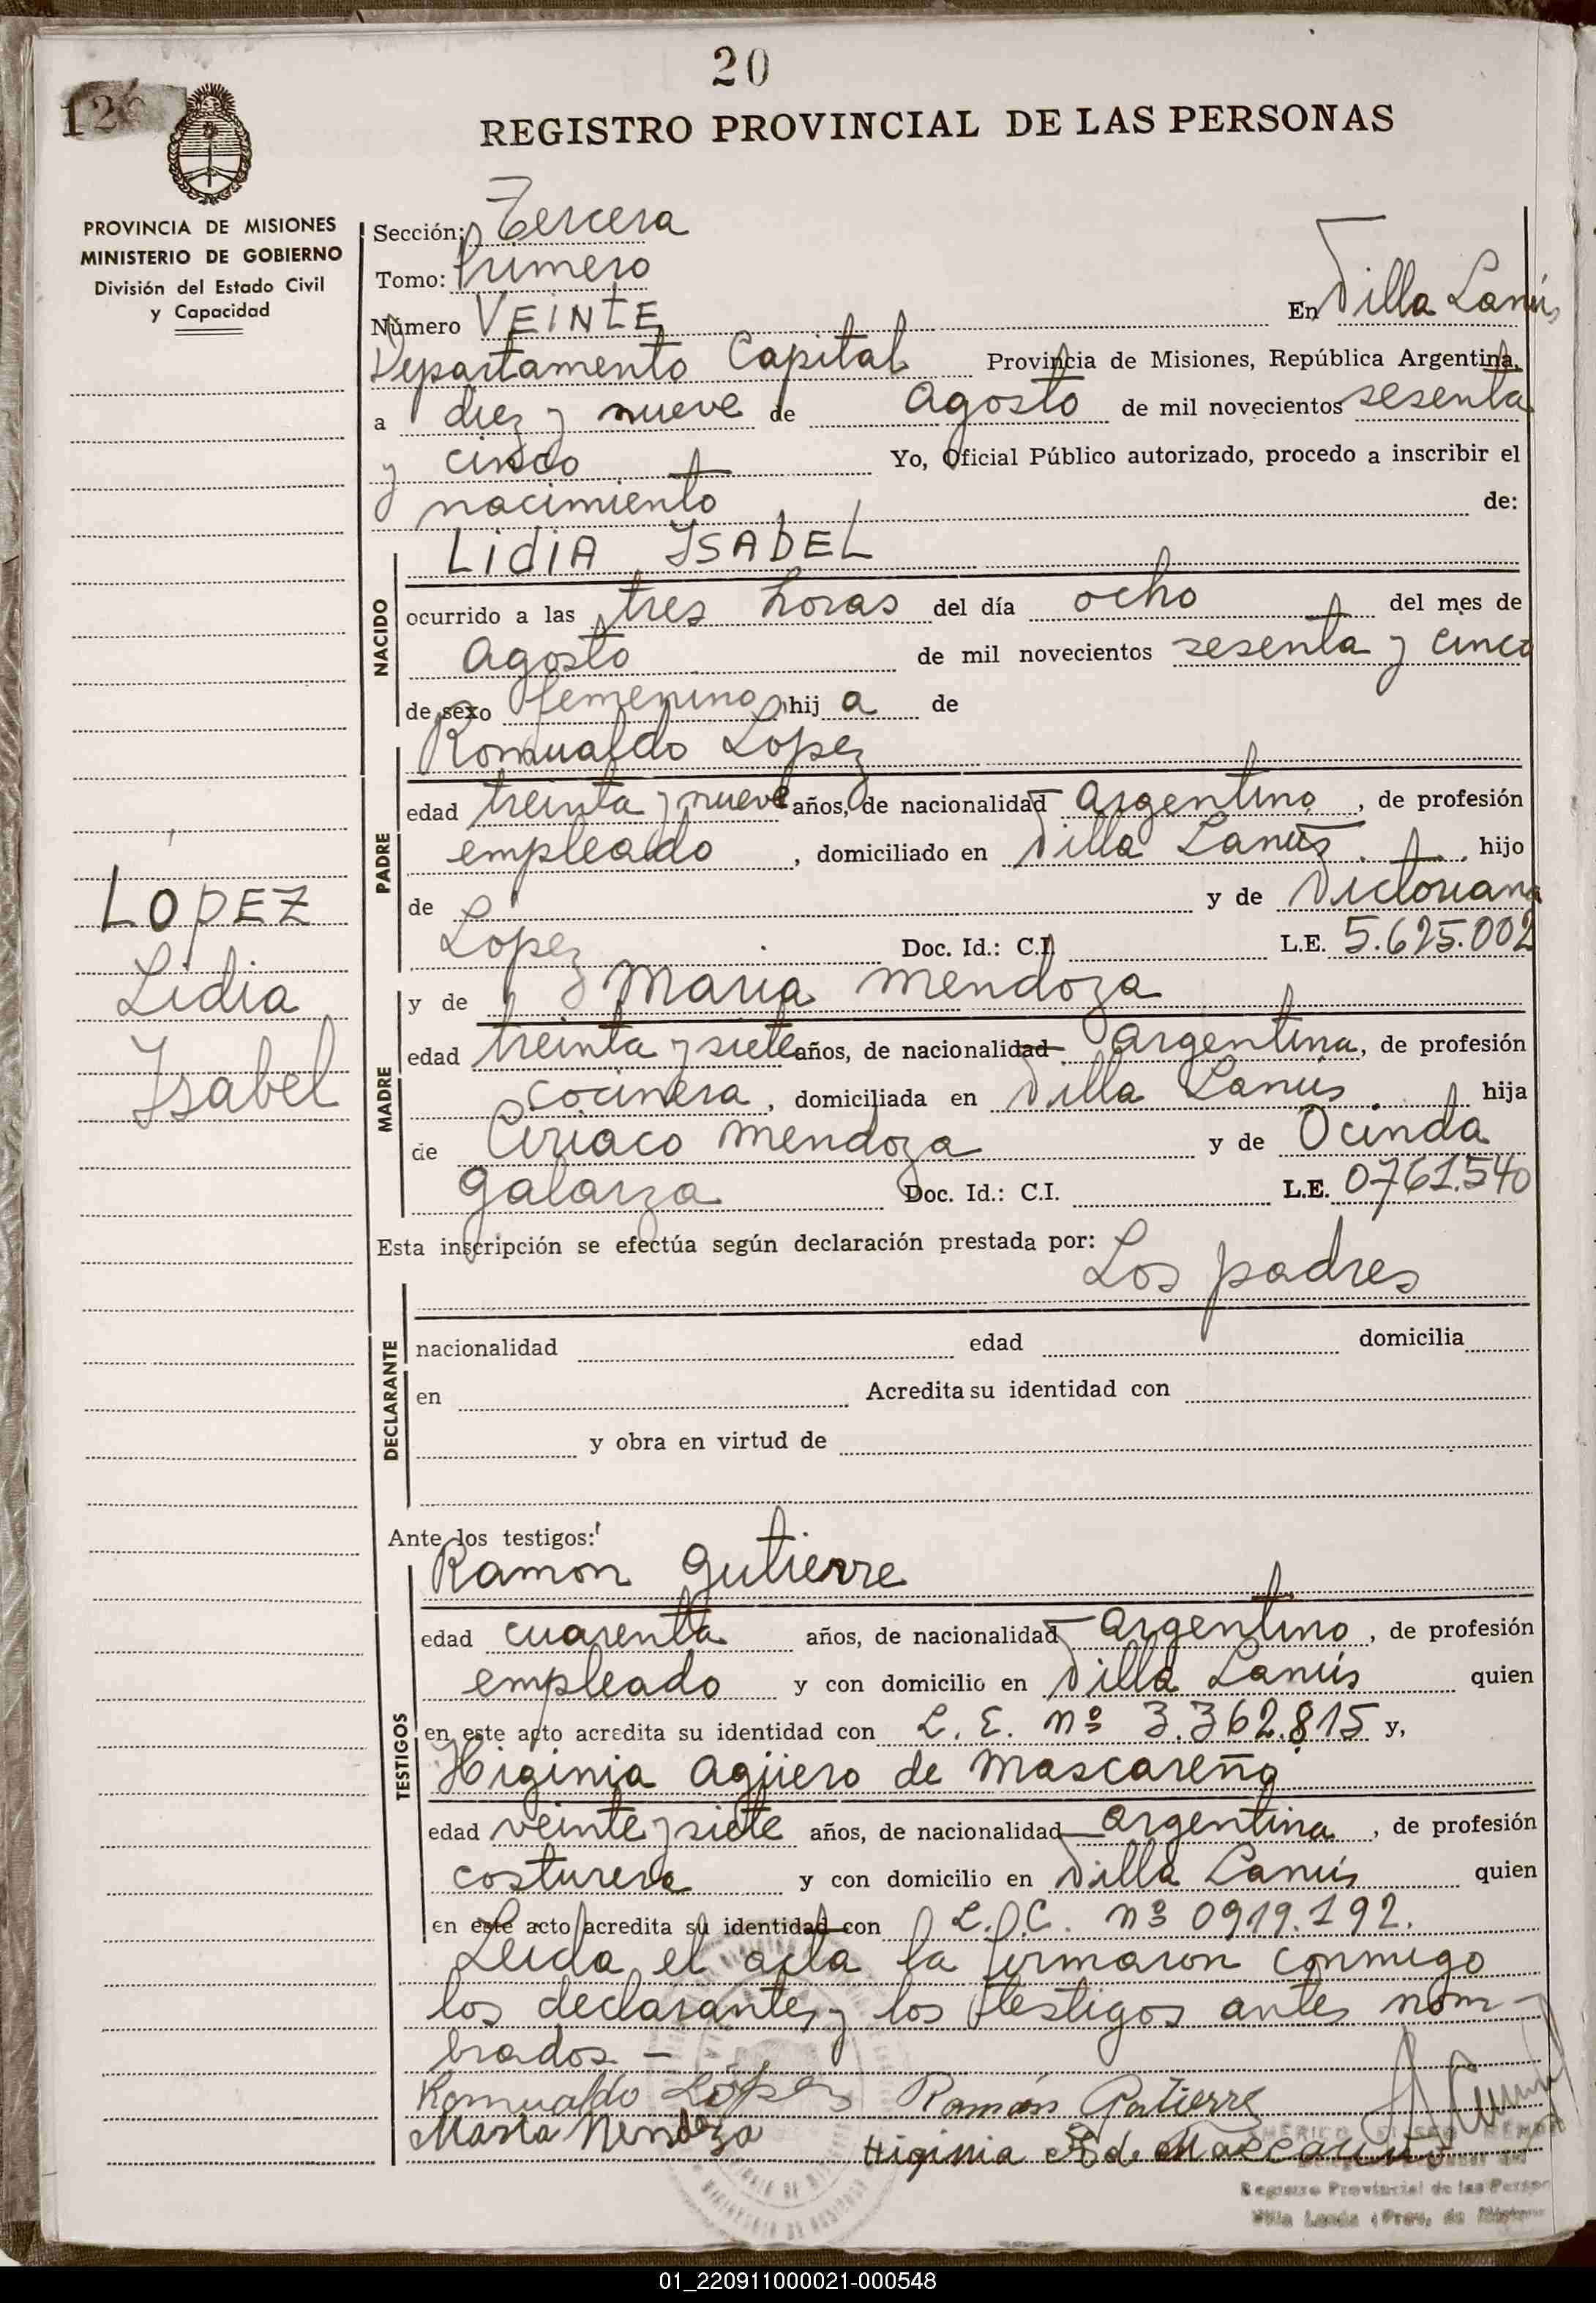 20
126
REGISTRO PROVINCIAL DE LAS PERSONAS
PROVINCIA DE MISIONES
MINISTERIO DE GOBIERNO
División del Estado Civil
y Capacidad
Sección: Tercera
Tomo: Primero
Número VEINTE En Villa Lanús,
Departamento Capital Provincia de Misiones, República Argentina,
a diez y nueve de Agosto de mil novecientos sesenta
y cinco Yo, Oficial Público autorizado, procedo a inscribir el
nacimiento de:
LIDIA ISABEL
NACIDO
ocurrido a las tres horas del día ocho del mes de
Agosto de mil novecientos sesenta y cinco
de sexo femenino hij a de
Romualdo Lopez
PADRE
edad treinta y nueve años, de nacionalidad argentino, de profesión
empleado, domiciliado en Villa Lanús, hijo
de y de Victoriana
Lopez Doc. Id.: C.I. L.E. 5.625.002
LOPEZ
Lidia
Isabel
y de Maria Mendoza
MADRE
edad treinta y siete años, de nacionalidad argentina, de profesión
cocinera, domiciliada en Villa Lanús hija
de Ciriaco Mendoza y de Ocinda
Galarza Doc. Id.: C.I. L.E. 0761.540
Esta inscripción se efectúa según declaración prestada por: Los padres
DECLARANTE
nacionalidad edad domicilia
en Acredita su identidad con
y obra en virtud de
Ante los testigos:
Ramon Gutierre
TESTIGOS
edad cuarenta años, de nacionalidad argentino, de profesión
empleado y con domicilio en Villa Lanús quien
en este acto acredita su identidad con L. E. nº 3.362.815 y,
Higinia Agüero de Mascareño
edad veinte y siete años, de nacionalidad argentina, de profesión
costurera y con domicilio en Villa Lanús quien
en este acto acredita su identidad con L.C. nº 0919.192.
Leida el acta la firmaron conmigo
los declarantes y los testigos antes nom-
brados -
Romualdo López Ramón Gutierre
Maria Mendoza Higinia A de Mascareño
Registro Provincial de las Person
Villa Lanús (Prov. de Misiones
01_220911000021-000548